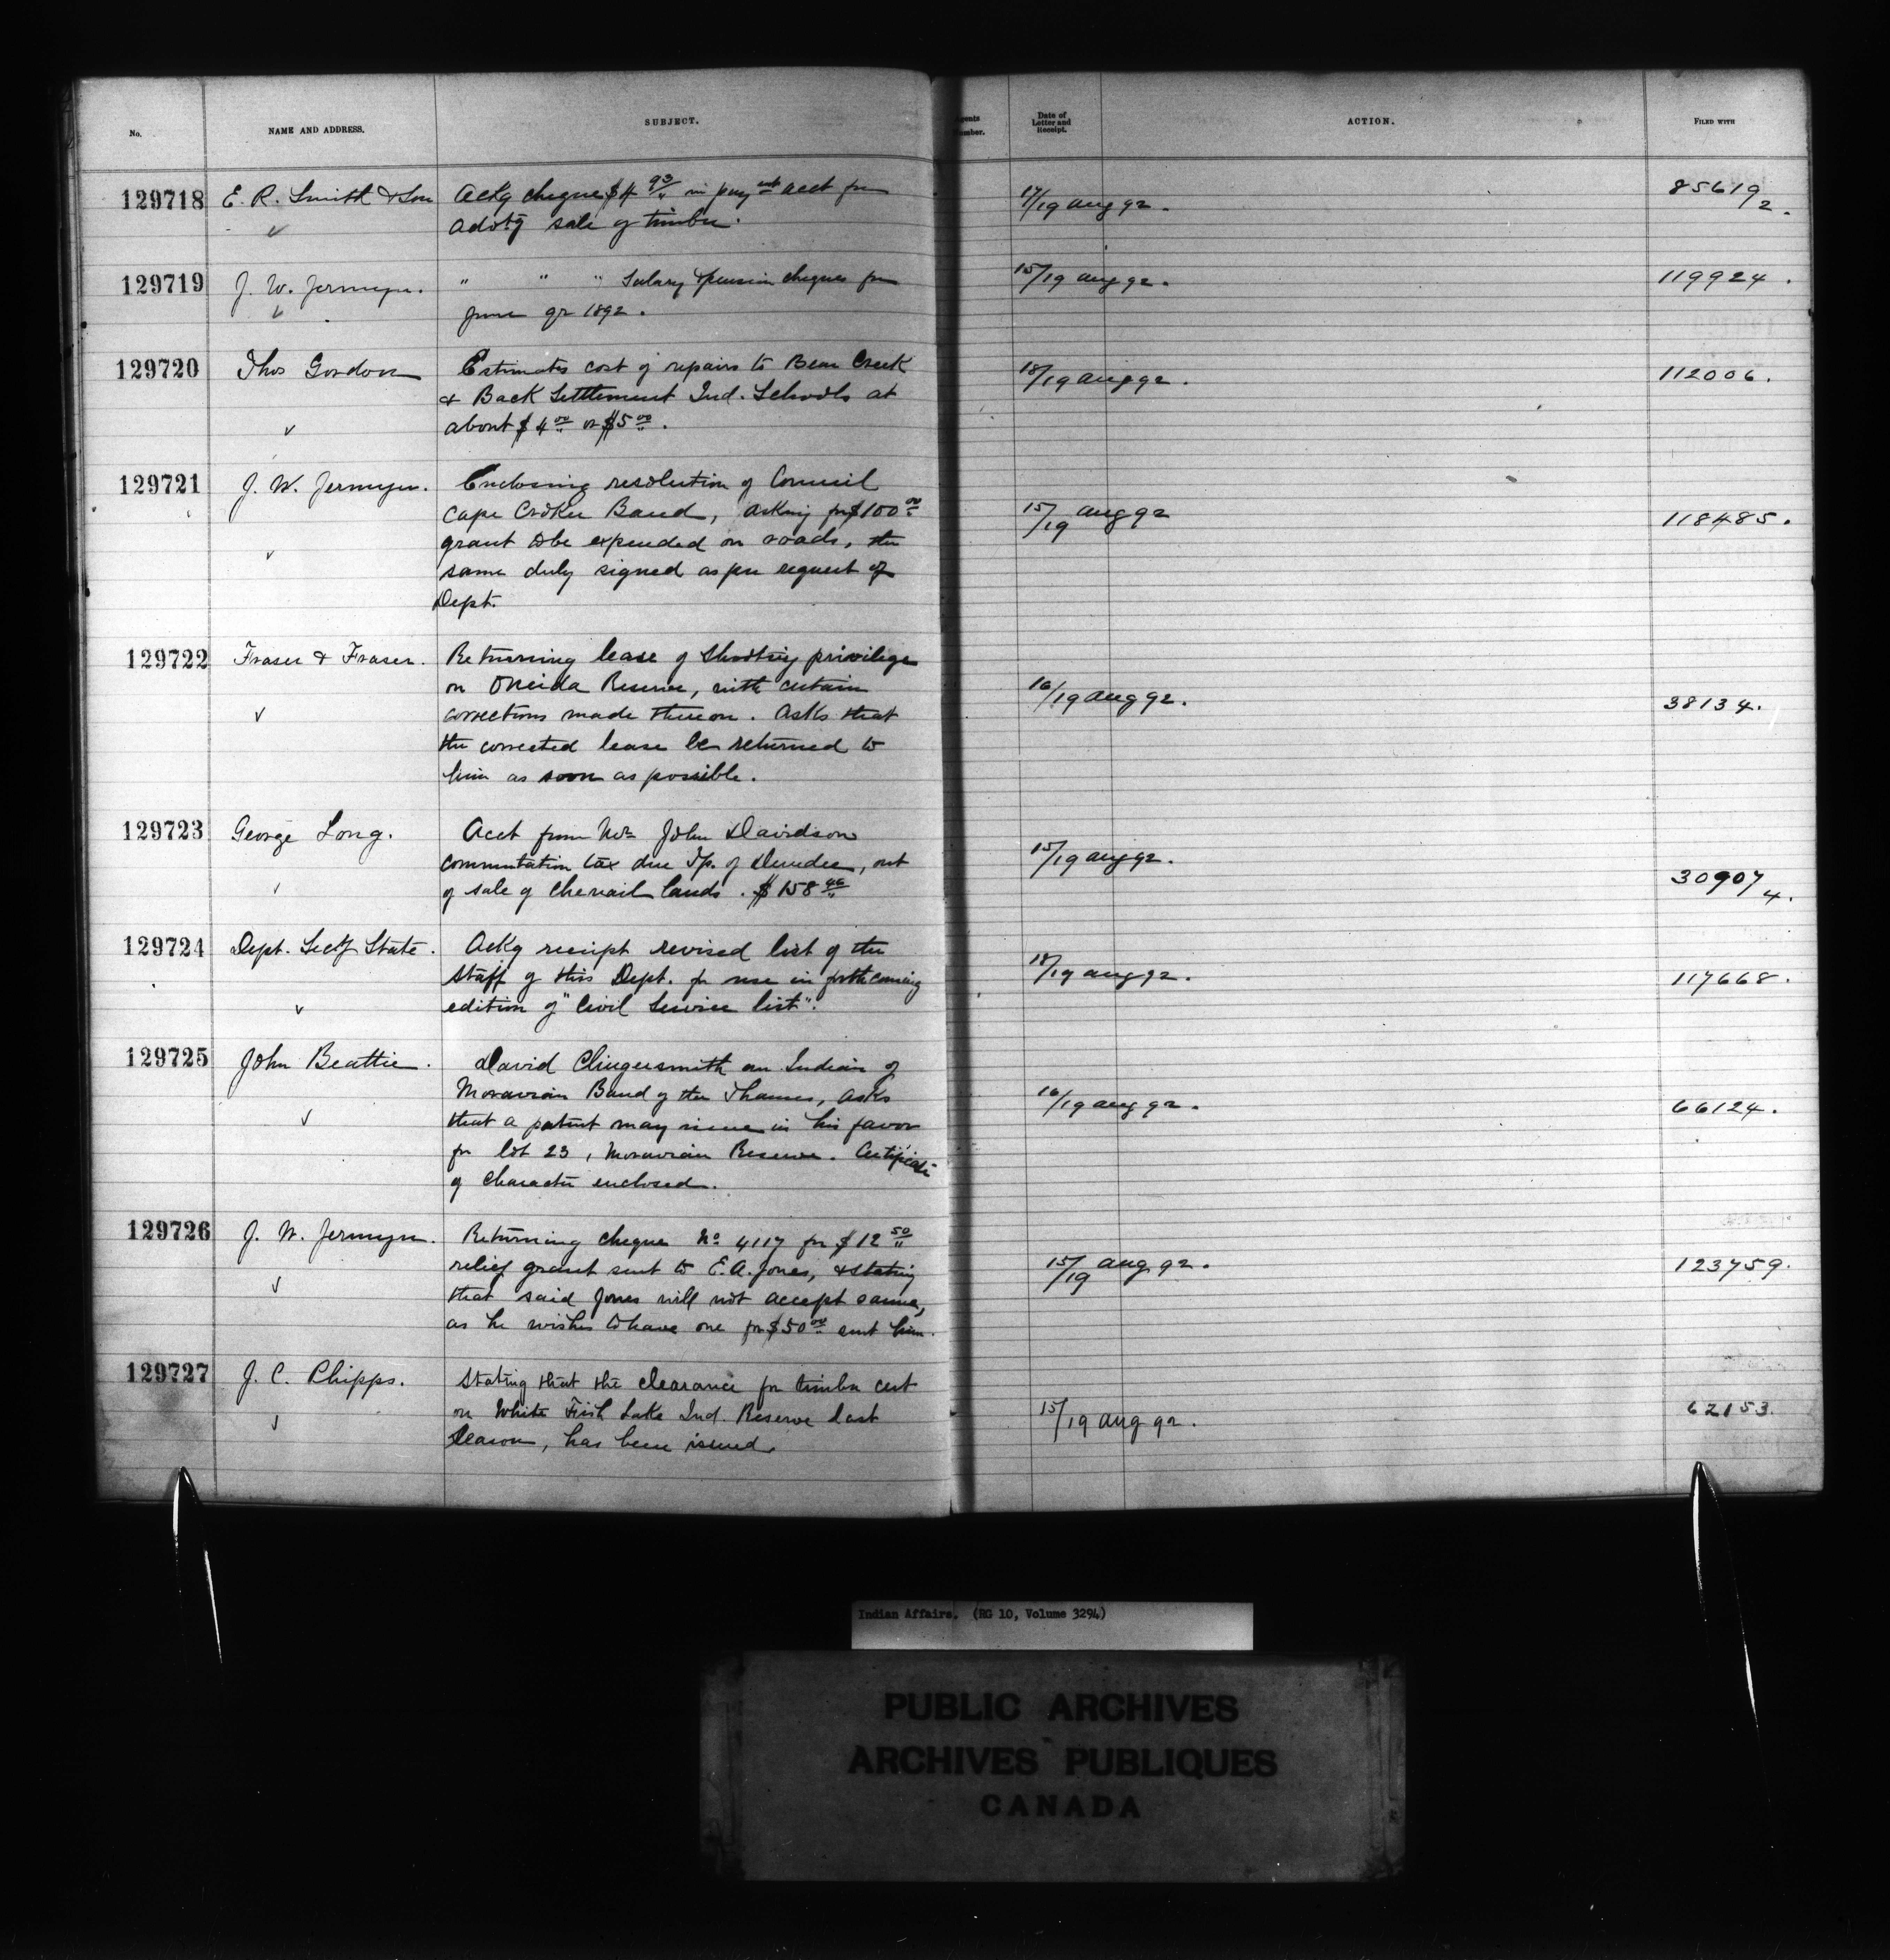 No. NAME AND ADDRESS. SUBJECT. Agents Number. Date of Letter and Receipt. ACTION. FILED WITH
129718 E. R. Smith & Son Ackg cheque $4 93/" in paymt acct for 17/19 Aug 92. 85619/2.
advtg sale of timber.
129719 J. W. Jermyn. " " " Salary & pension cheques for 15/19 Aug 92. 119924.
June qr 1892.
129720 Thos Gordon Estimates cost of repairs to Bear Creek 18/19 Aug 92. 112006.
& Back Settlement Ind. Schools at
about $4.00 or $5.00.
129721 J. W. Jermyn. Enclosing resolution of Council
Cape Croker Band, asking for $100.00 15/19 Aug 92 118485.
grant to be expended on roads, the
same duly signed as per request of
Dept.
129722 Fraser & Fraser. Returning lease of Shooting privilege
on Oneida Reserve, with certain 16/19 Aug 92. 38134.
corrections made thereon. Asks that
the corrected lease be returned to
him as soon as possible.
129723 George Long. Acct from Mr John Davidson
commutation tax due Tp. of Dundee, out 15/19 Aug 92. 30907/4.
of sale of Chenail lands. $158
129724 Dept. Secy State. Ackg receipt revised list of the
staff of this Dept. for use in forthcoming 18/19 Aug 92. 117668.
edition of "Civil Service list".
129725 John Beattie. David Clingersmith an Indian of
Moravian Band of the Thames, asks 16/19 Aug 92. 66124.
that a patent may issue in his favor
for lot 23, Moravian Reserve. Certificate
of Character enclosed.
129726 J. W. Jermyn. Returning cheque No 4117 for $12 50/"
relief grant sent to E. A. Jones, & stating 15/19 Aug 92. 123759.
that said Jones will not accept same,
as he wishes to have one for $50.00 sent him.
129727 J. C. Phipps. Stating that the clearance for timber cut
on White Fish Lake Ind. Reserve last 15/19 Aug 92. 62153.
Season, has been issued.
Indian Affairs. (RG 10, Volume 3294)
PUBLIC ARCHIVES
ARCHIVES PUBLIQUES
CANADA